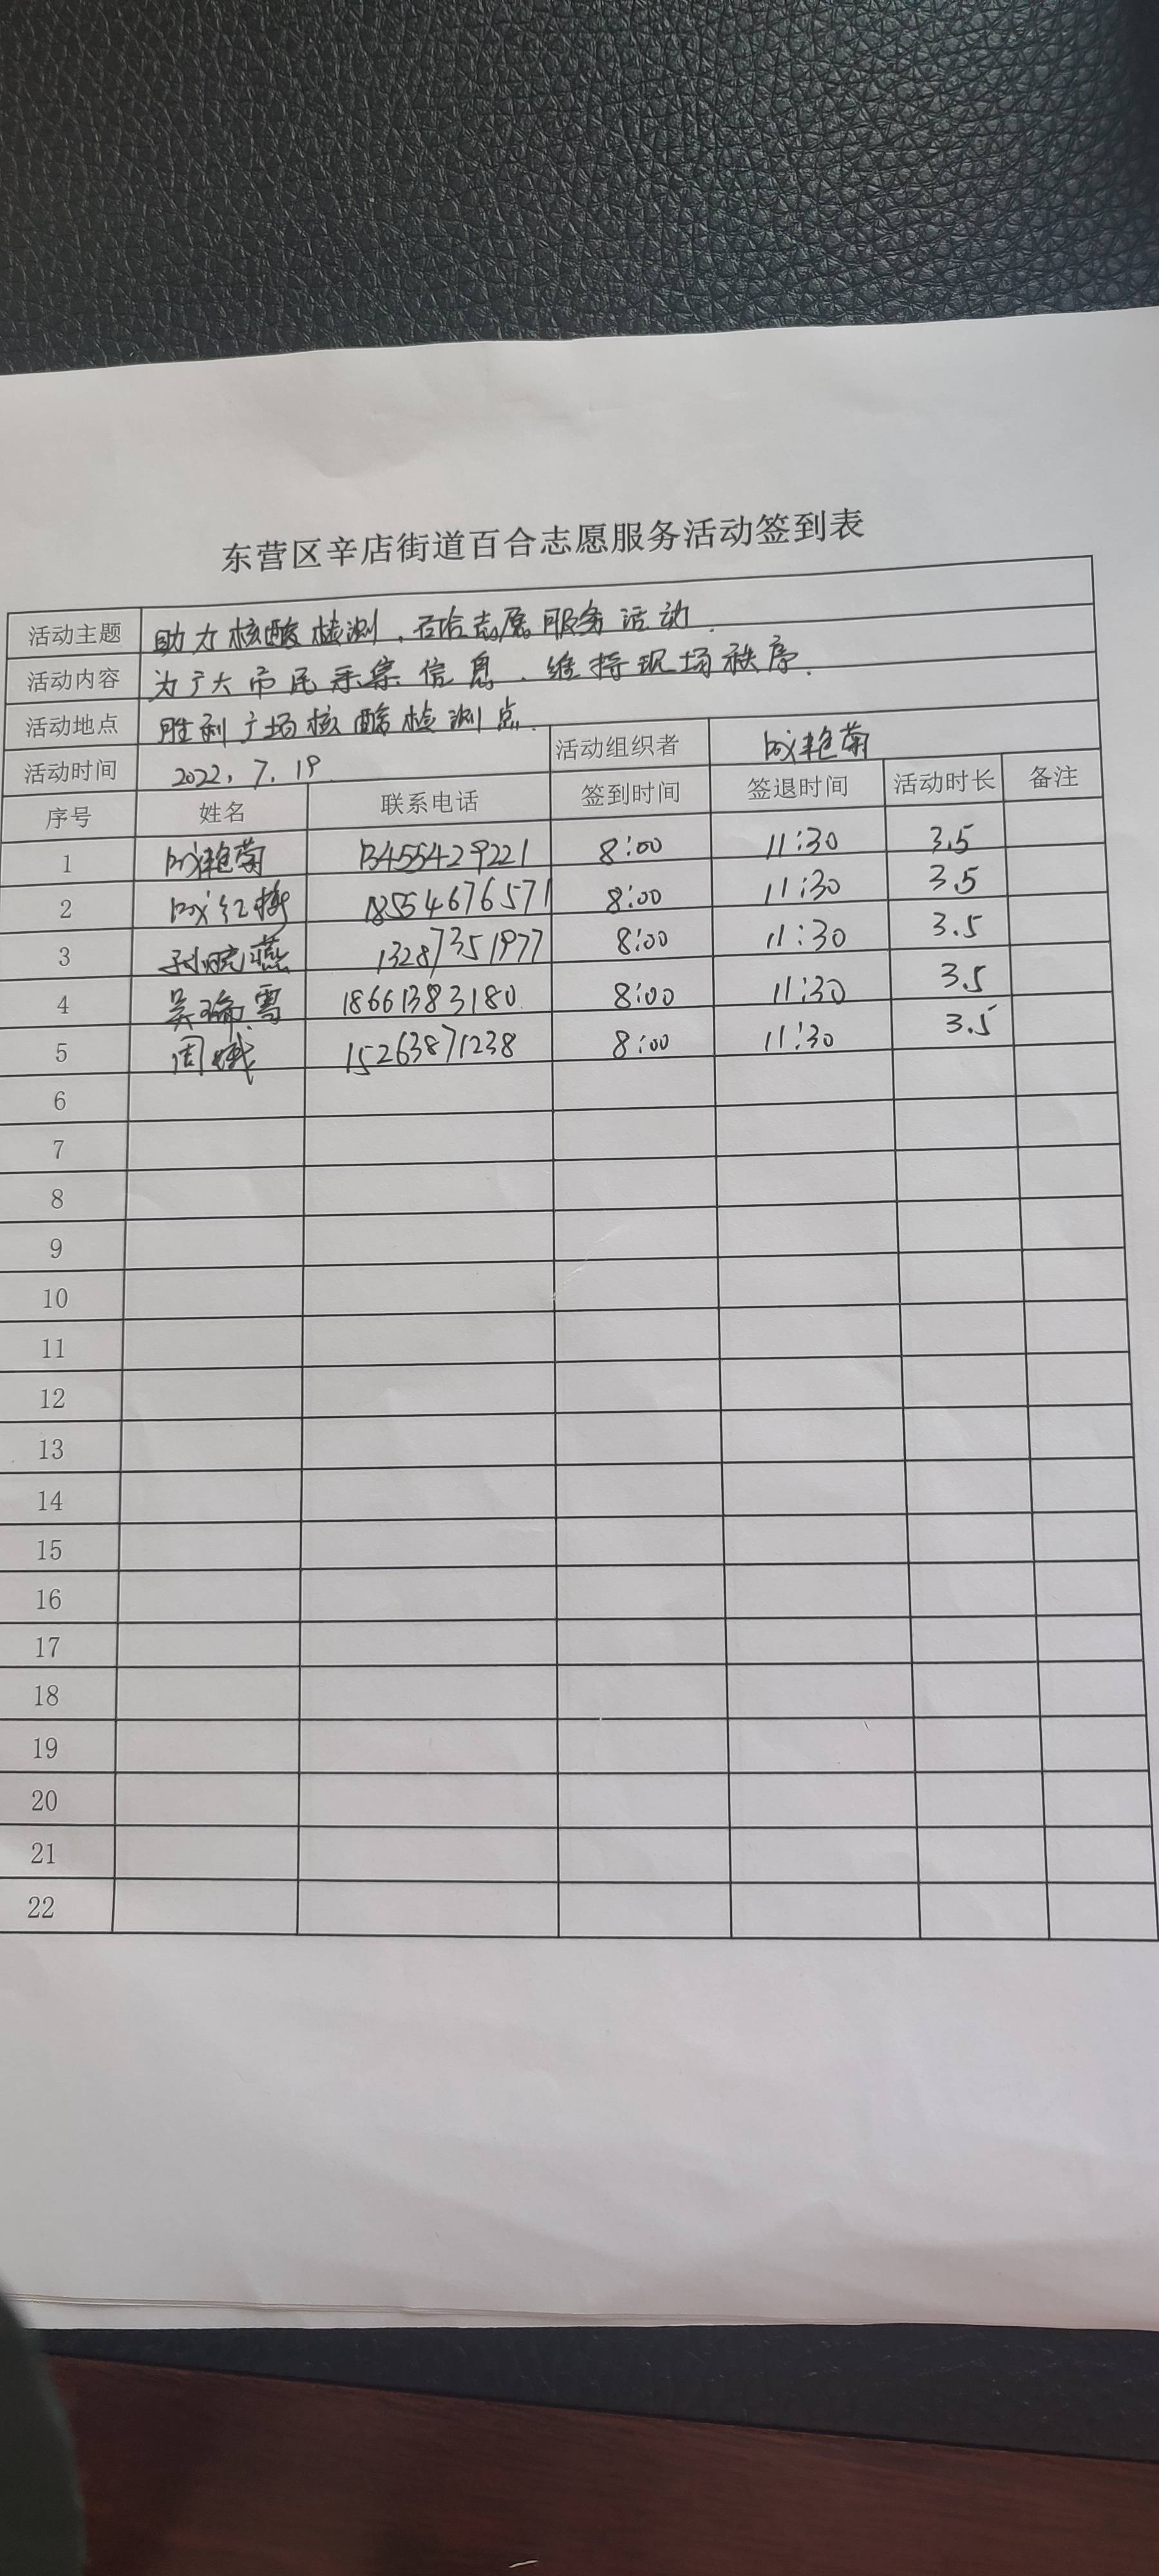 东营区辛店街道百合志愿服务活动签到表
活动主题 助力核酸检测,百合志愿服务活动.
活动内容 为广大市民采集信息、维持现场秩序.
活动地点 胜利广场核酸检测点.
活动时间 2022.7.19. 活动组织者 艳菊
序号 姓名 联系电话 签到时间 签退时间 活动时长 备注
1 艳菊 13455429221 8:00 11:30 3.5
2 红梅 18554676571 8:00 11:30 3.5
3 孙晓燕 13287351977 8:00 11:30 3.5
4 吴瑞雪 18661383180 8:00 11:30 3.5
5 周娥 15263871238 8:00 11:30 3.5
6
7
8
9
10
11
12
13
14
15
16
17
18
19
20
21
22